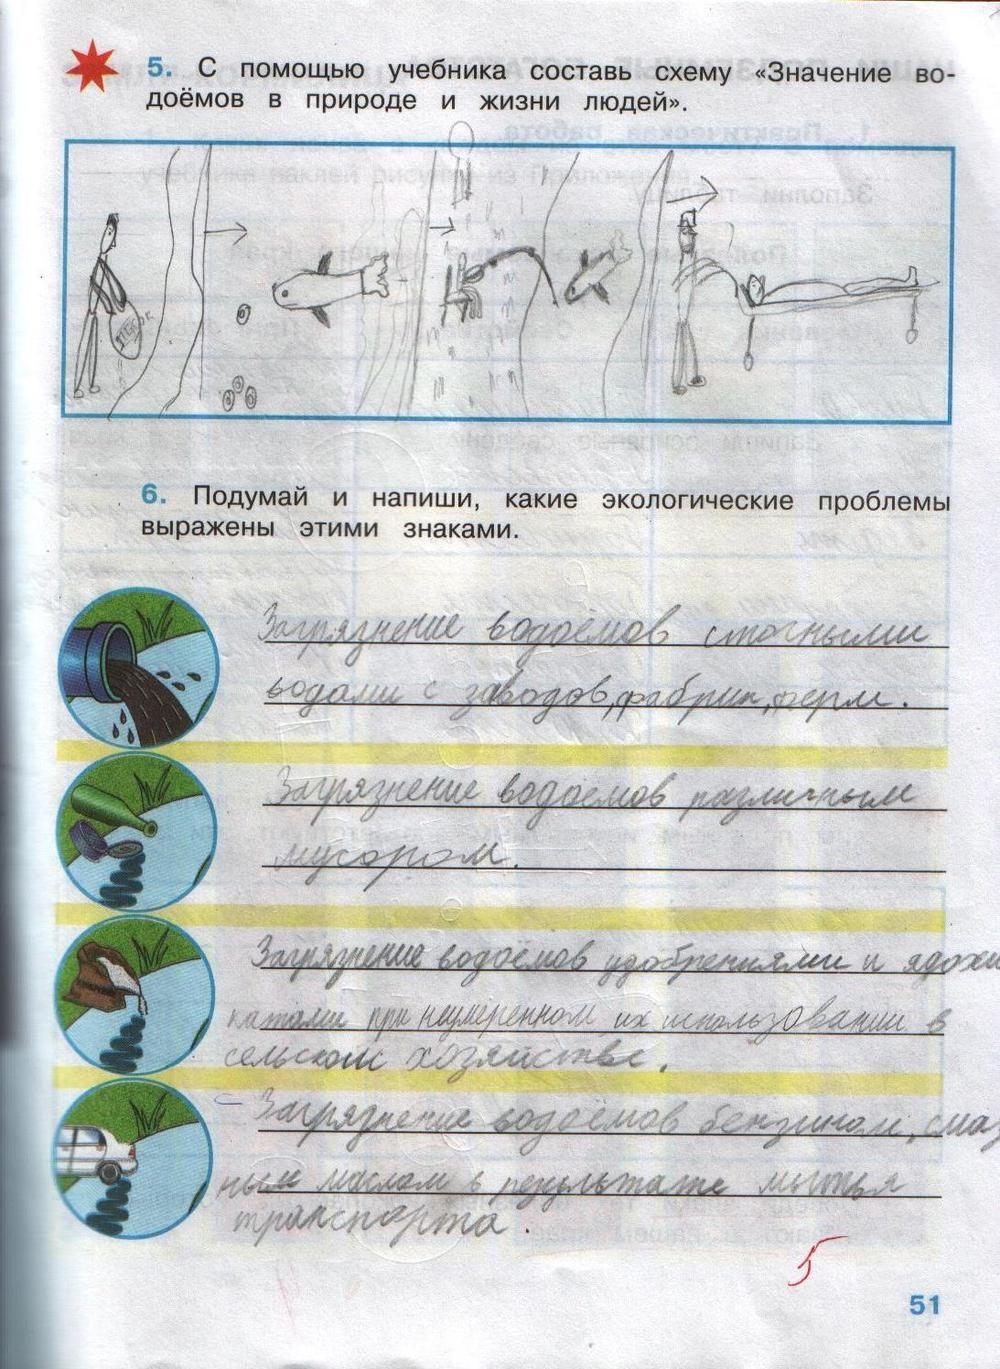 5. С помощью учебника составь схему «Значение во-
доёмов в природе и жизни людей».
6. Подумай и напиши, какие экологические проблемы
выражены этими знаками.
Загрязнение водоёмов сточными
водами с заводов, фабрик, ферм.
Загрязнение водоёмов различным
мусором.
Загрязнение водоёмов удобрениями и ядохи
катами при неумеренном их использовании в
сельском хозяйстве.
Загрязнение водоёмов бензином, смаз
ным маслом в результате мытья
транспорта.
5
51